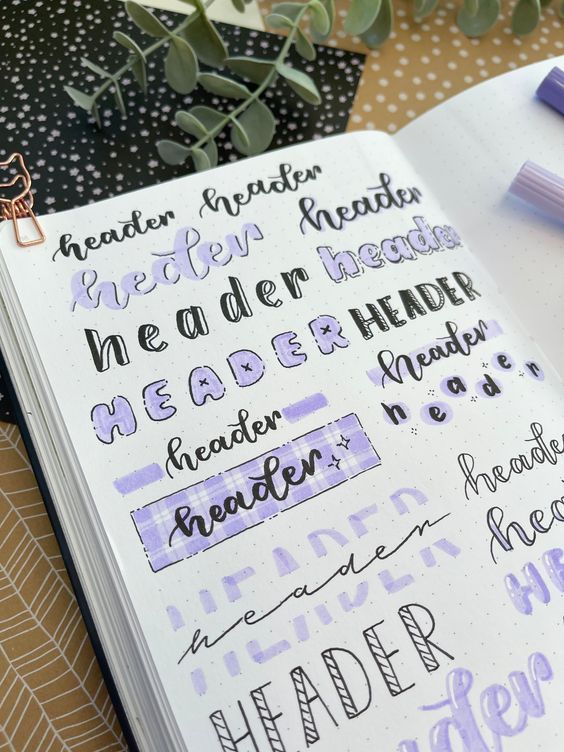 header header
header header
header header
HEADER HEADER
header header
header
header
header
HEADER
header
HEADER
HEADER